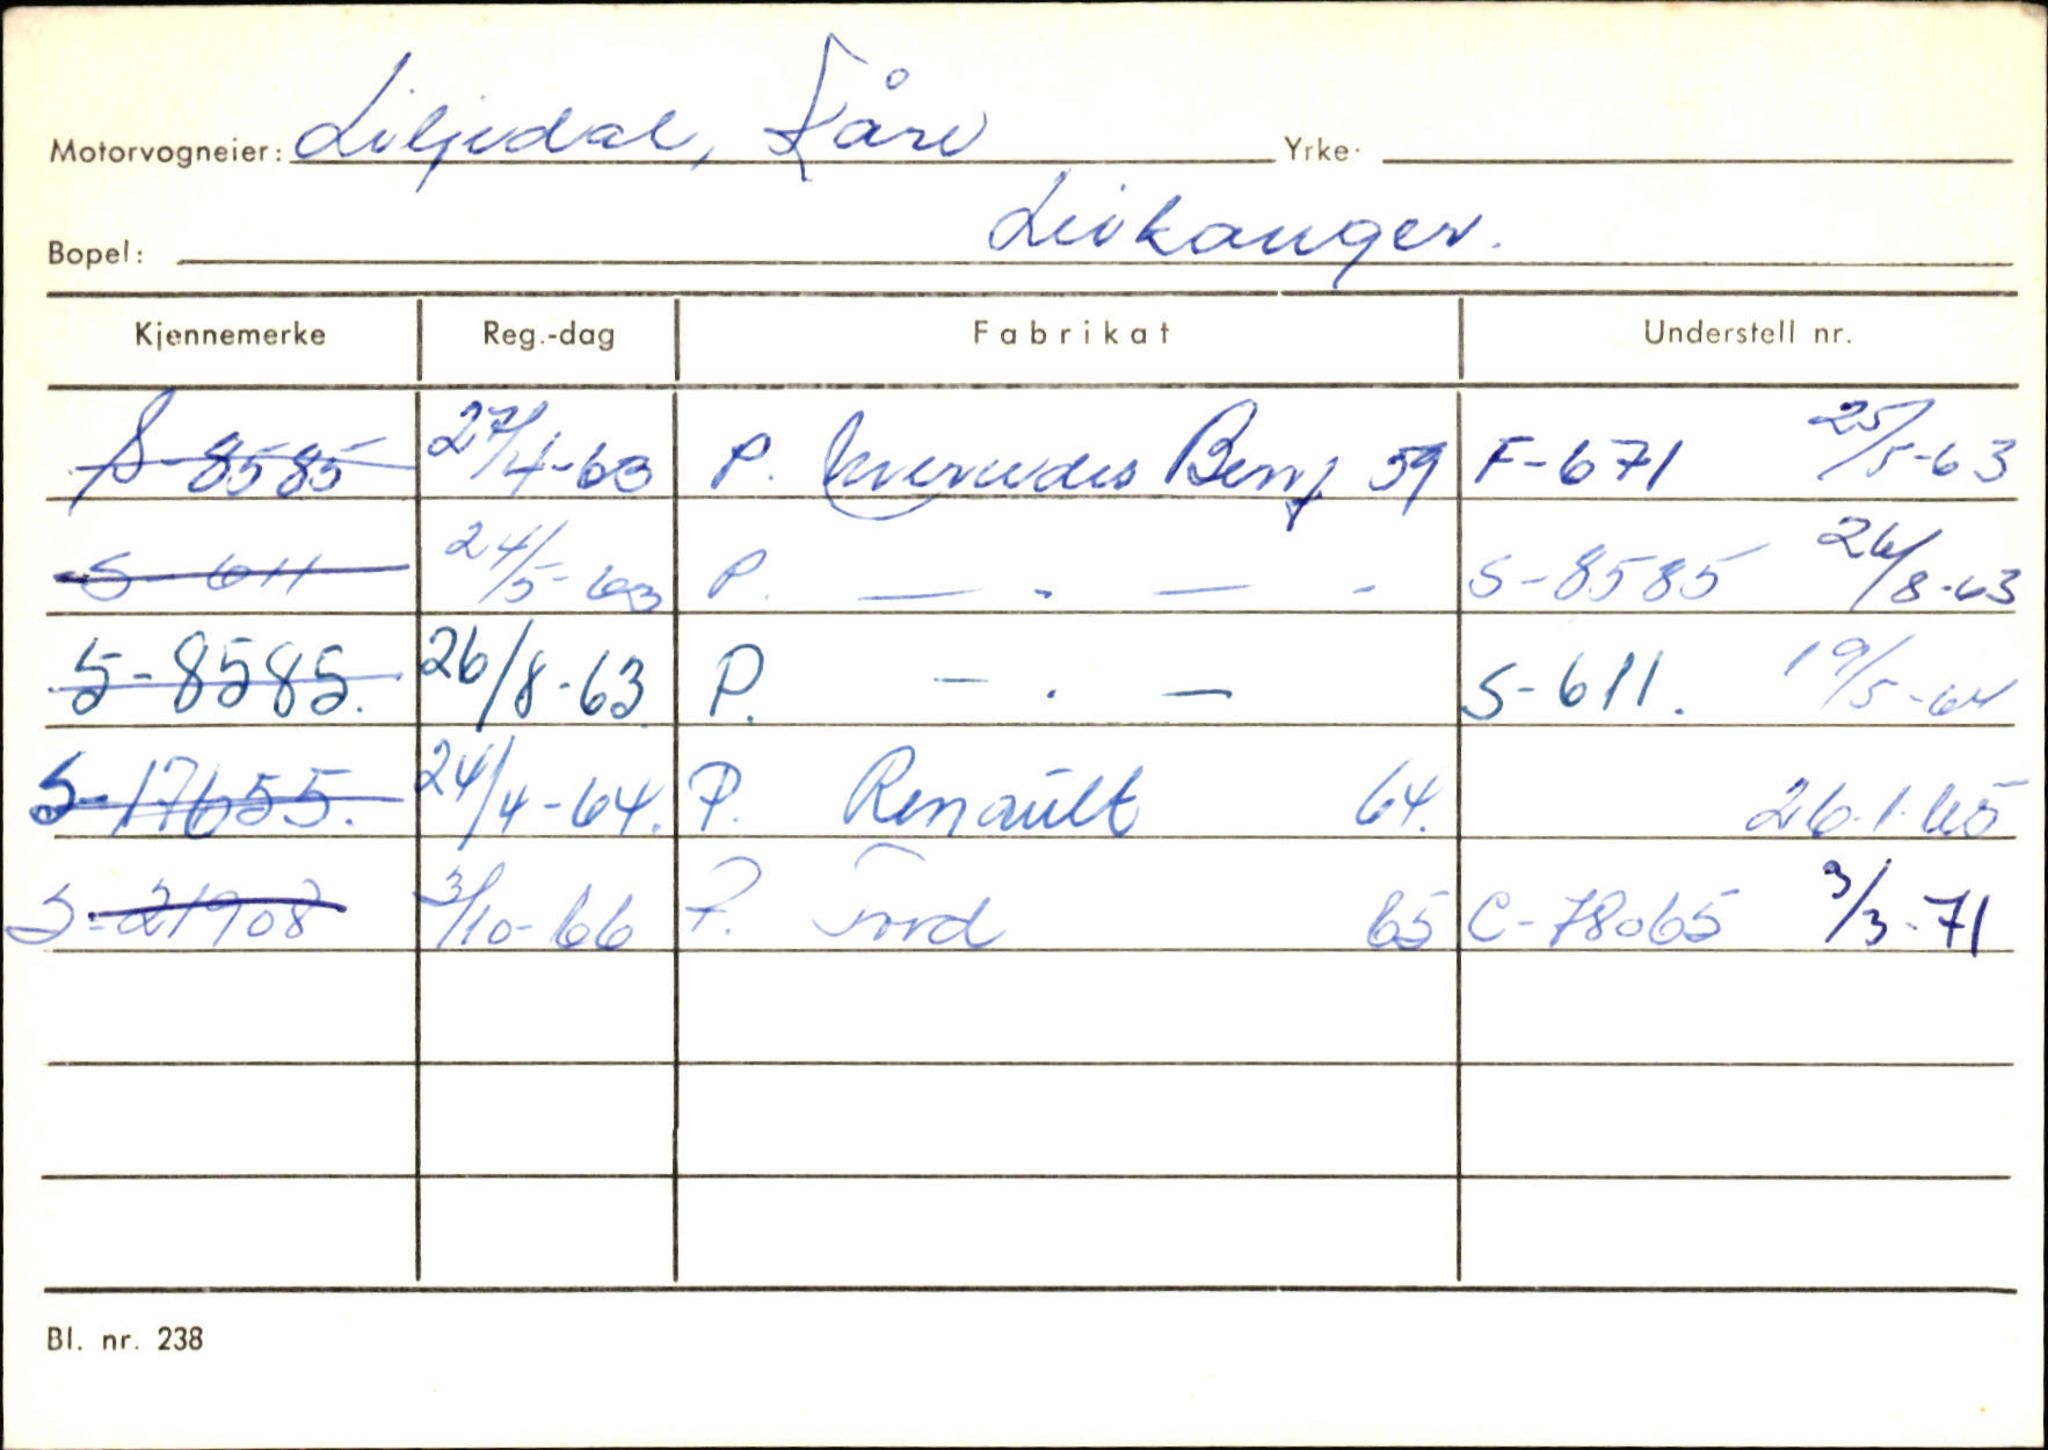 Motorvogneier: Liljedal, Kåre Yrke·
Bopel: Leikanger.
Kjennemerke Reg.-dag Fabrikat Understell nr.
S-8585 27/4-63 P. Mercedes Benz 59 F-671 25/5-63
S-611 24/5-63 P. — . — - S-8585 26/8-63
S-8585. 26/8-63 P. — . — S-611. 19/5-64
S-17655. 24/4-64. P. Renault 64. 26.1.65
S-21908 3/10-66 P. Ford 65 C-78065 3/3-71
Bl. nr. 238